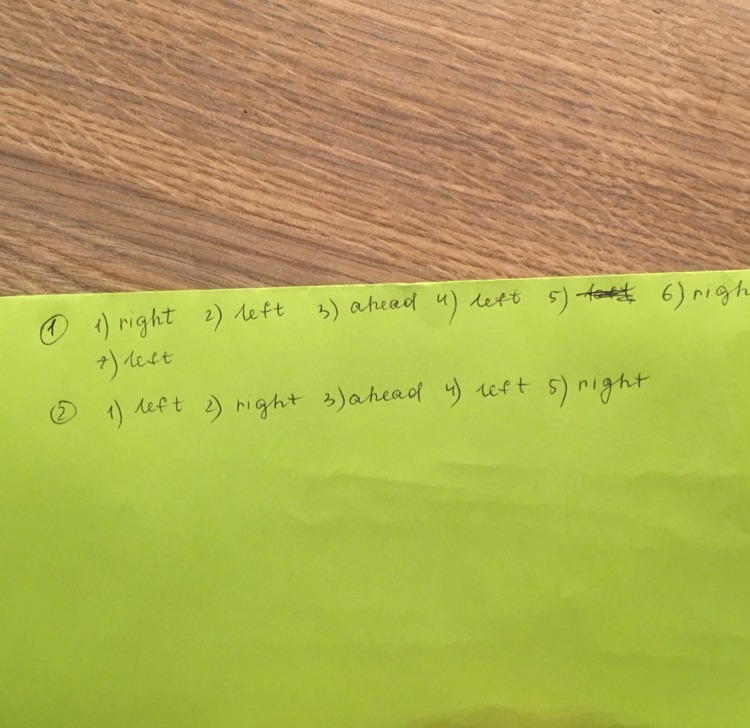 ① 1) right 2) left 3) ahead 4) left 5) 6) righ
7) left
② 1) left 2) right 3) ahead 4) left 5) right